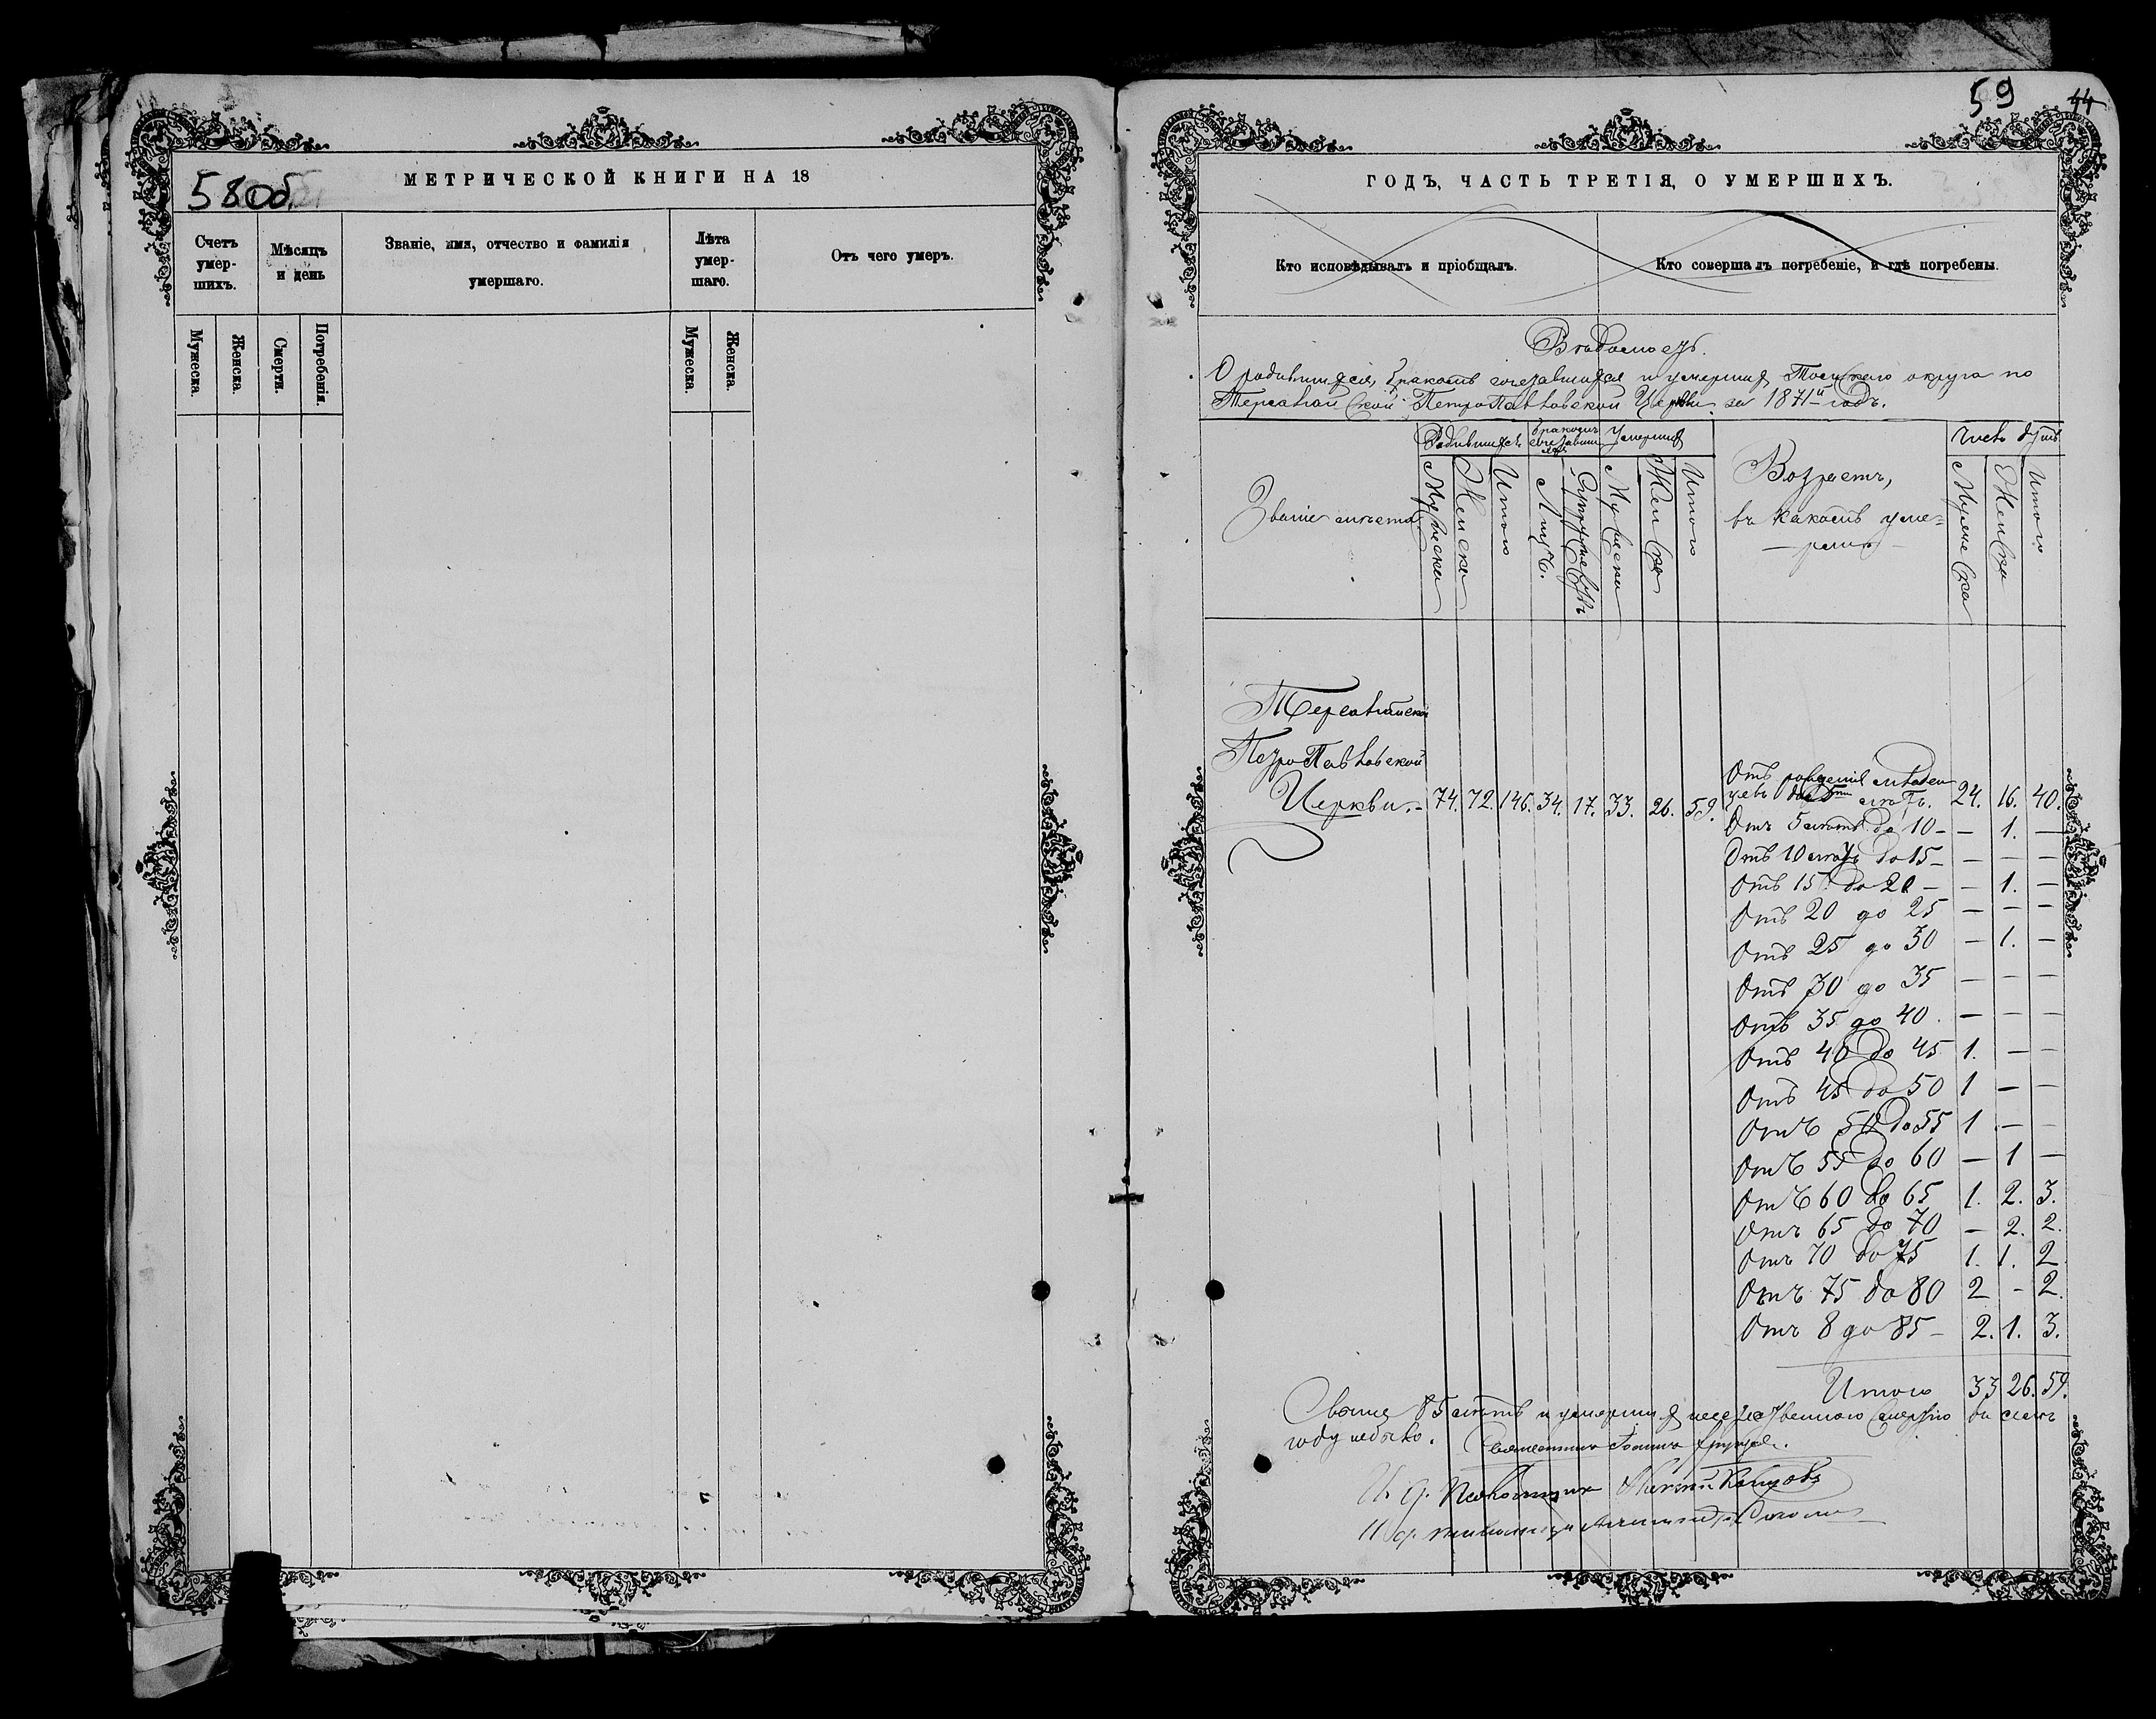 58об.
МЕТРИЧЕСКОЙ КНИГИ НА 18
Счетъ умер-шихъ.
Мѣсяцъ и день
Званіе, имя, отчество и фамилія умершаго.
Лѣта умер-шаго.
Отъ чего умеръ.
Мужеска.
Женска.
Смерти.
Погребенія.
Мужеска.
Женска.
59 44
ГОДЪ, ЧАСТЬ ТРЕТІЯ, О УМЕРШИХЪ.
Кто исповѣдывалъ и пріобщалъ.
Кто совершалъ погребеніе, и гдѣ погребены.
Вѣдомость.
О родившихся, бракомъ сочетавшихся и умершихъ округа по
Петропавловской Церкви за 1871й годъ.
Званіе мѣста
Родившихся
Бракомъ сочетавши
Умершихъ
Возрастъ,
въ какомъ уме=
рли
Число душъ
Мужеска
Женска
Итого
Лицъ.
Супружествъ
Мужеска
Женска
Итого
Мужеска
Женска
Итого
Петропавловской
Церкви.- 74. 72. 146. 34. 17. 33. 26. 59.
Отъ рожденія младен
цевъ до 5ти лѣтъ. 24. 16. 40.
Отъ 5 лѣтъ до 10 - — 1. —
Отъ 10 лѣтъ до 15 - — — —
Отъ 15 до 20 - — 1. —
Отъ 20 до 25 — — —
Отъ 25 до 30 — 1. —
Отъ 30 до 35 — — —
Отъ 35 до 40 . — — —
Отъ 40 до 45 1. — —
Отъ 45 до 50 1 — —
Отъ 50 до 55 1 — —
Отъ 55 до 60 — 1 —
Отъ 60 до 65 1. 2. 3.
Отъ 65 до 70 — 2. 2.
Отъ 70 до 75 1. 1. 2
Отъ 75 до 80 2 - 2.
Отъ 8 до 85 - 2. 1. 3.
Итого 33 26. 59.
Свыше 85 лѣтъ и умершихъ смертію въ семъ
году небыло. Священникъ Іоаннъ
И. д. Псаломщика
И. д.